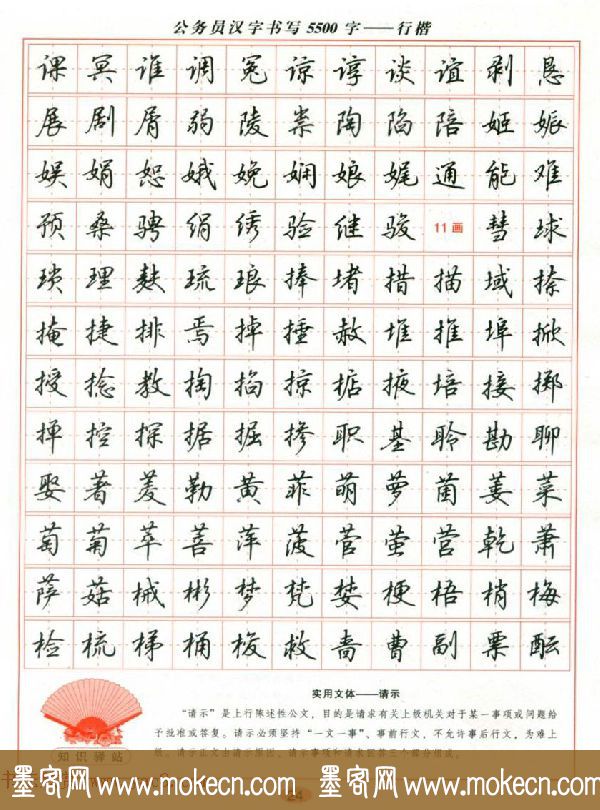 公务员汉字书写5500字——行楷
课冥谁调冤谅谆谈谊剥恳
展剧屑弱陵祟陶陷陪姬娠
娱娟恕娥娩娴娘娓通能难
预桑骋绢绣验继骏11画彗球
琐理麸琉琅捧堵措描域捺
掩捷排焉掉捶赦堆推埠掀
授捻教掏掐掠掂掖培接掷
掸控探据掘掺职基聆勘聊
娶著菱勒黄菲萌萝菌萎菜
萄菊萃菩萍菠菅萤营乾萧
萨菇械彬梦梵婪梗梧梢梅
检梳梯桶梭救啬曹副票酝
实用文体——请示
“请示”是上行陈述性公文，目的是请求有关上级机关对于某一事项或问题给
予批准或答复。请示必须坚持“一文一事”、事前行文，不允许事后行文，为难上
级。请示正文由请示原因、请示事项和请求回答三个部分组成。
知识驿站
24
墨客网 www.mokecn.com 墨客网 www.mokecn.com